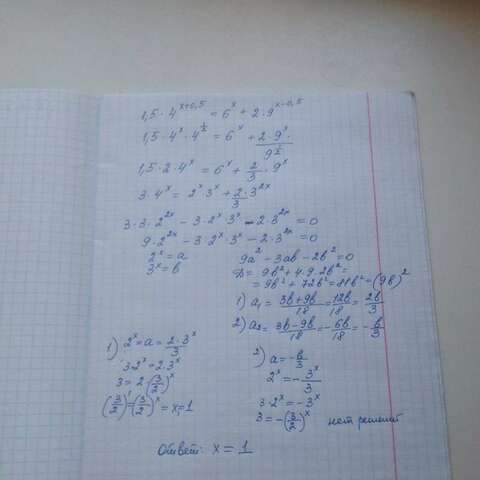 1,5 · 4^{x+0,5} = 6^x + 2 · 9^{x-0,5}
1,5 · 4^x · 4^{1/2} = 6^x + (2 · 9^x)/9^{1/2}
1,5 · 2 · 4^x = 6^x + 2/3 · 9^x
3 · 4^x = 2^x 3^x + 2/3 · 3^{2x}
3 · 3 · 2^{2x} - 3 · 2^x 3^x - 2 · 3^{2x} = 0
9 · 2^{2x} - 3 · 2^x · 3^x - 2 · 3^{2x} = 0
2^x = a
3^x = b
9a² - 3ab - 2b² = 0
D = 9b² + 4 · 9 · 2b² =
= 9b² + 72b² = 81b² = (9b)²
1) a₁ = (3b + 9b)/18 = 12b/18 = 2b/3
2) a₂ = (3b - 9b)/18 = -6b/18 = -b/3
1) 2^x = a = (2 · 3^x)/3
3 · 2^x = 2 · 3^x
3 = 2 · (3/2)^x
(3/2)^1 = (3/2)^x = x = 1
2) a = -b/3
2^x = -3^x/3
3 · 2^x = -3^x
3 = -(3/2)^x нет решений
Ответ: x = 1